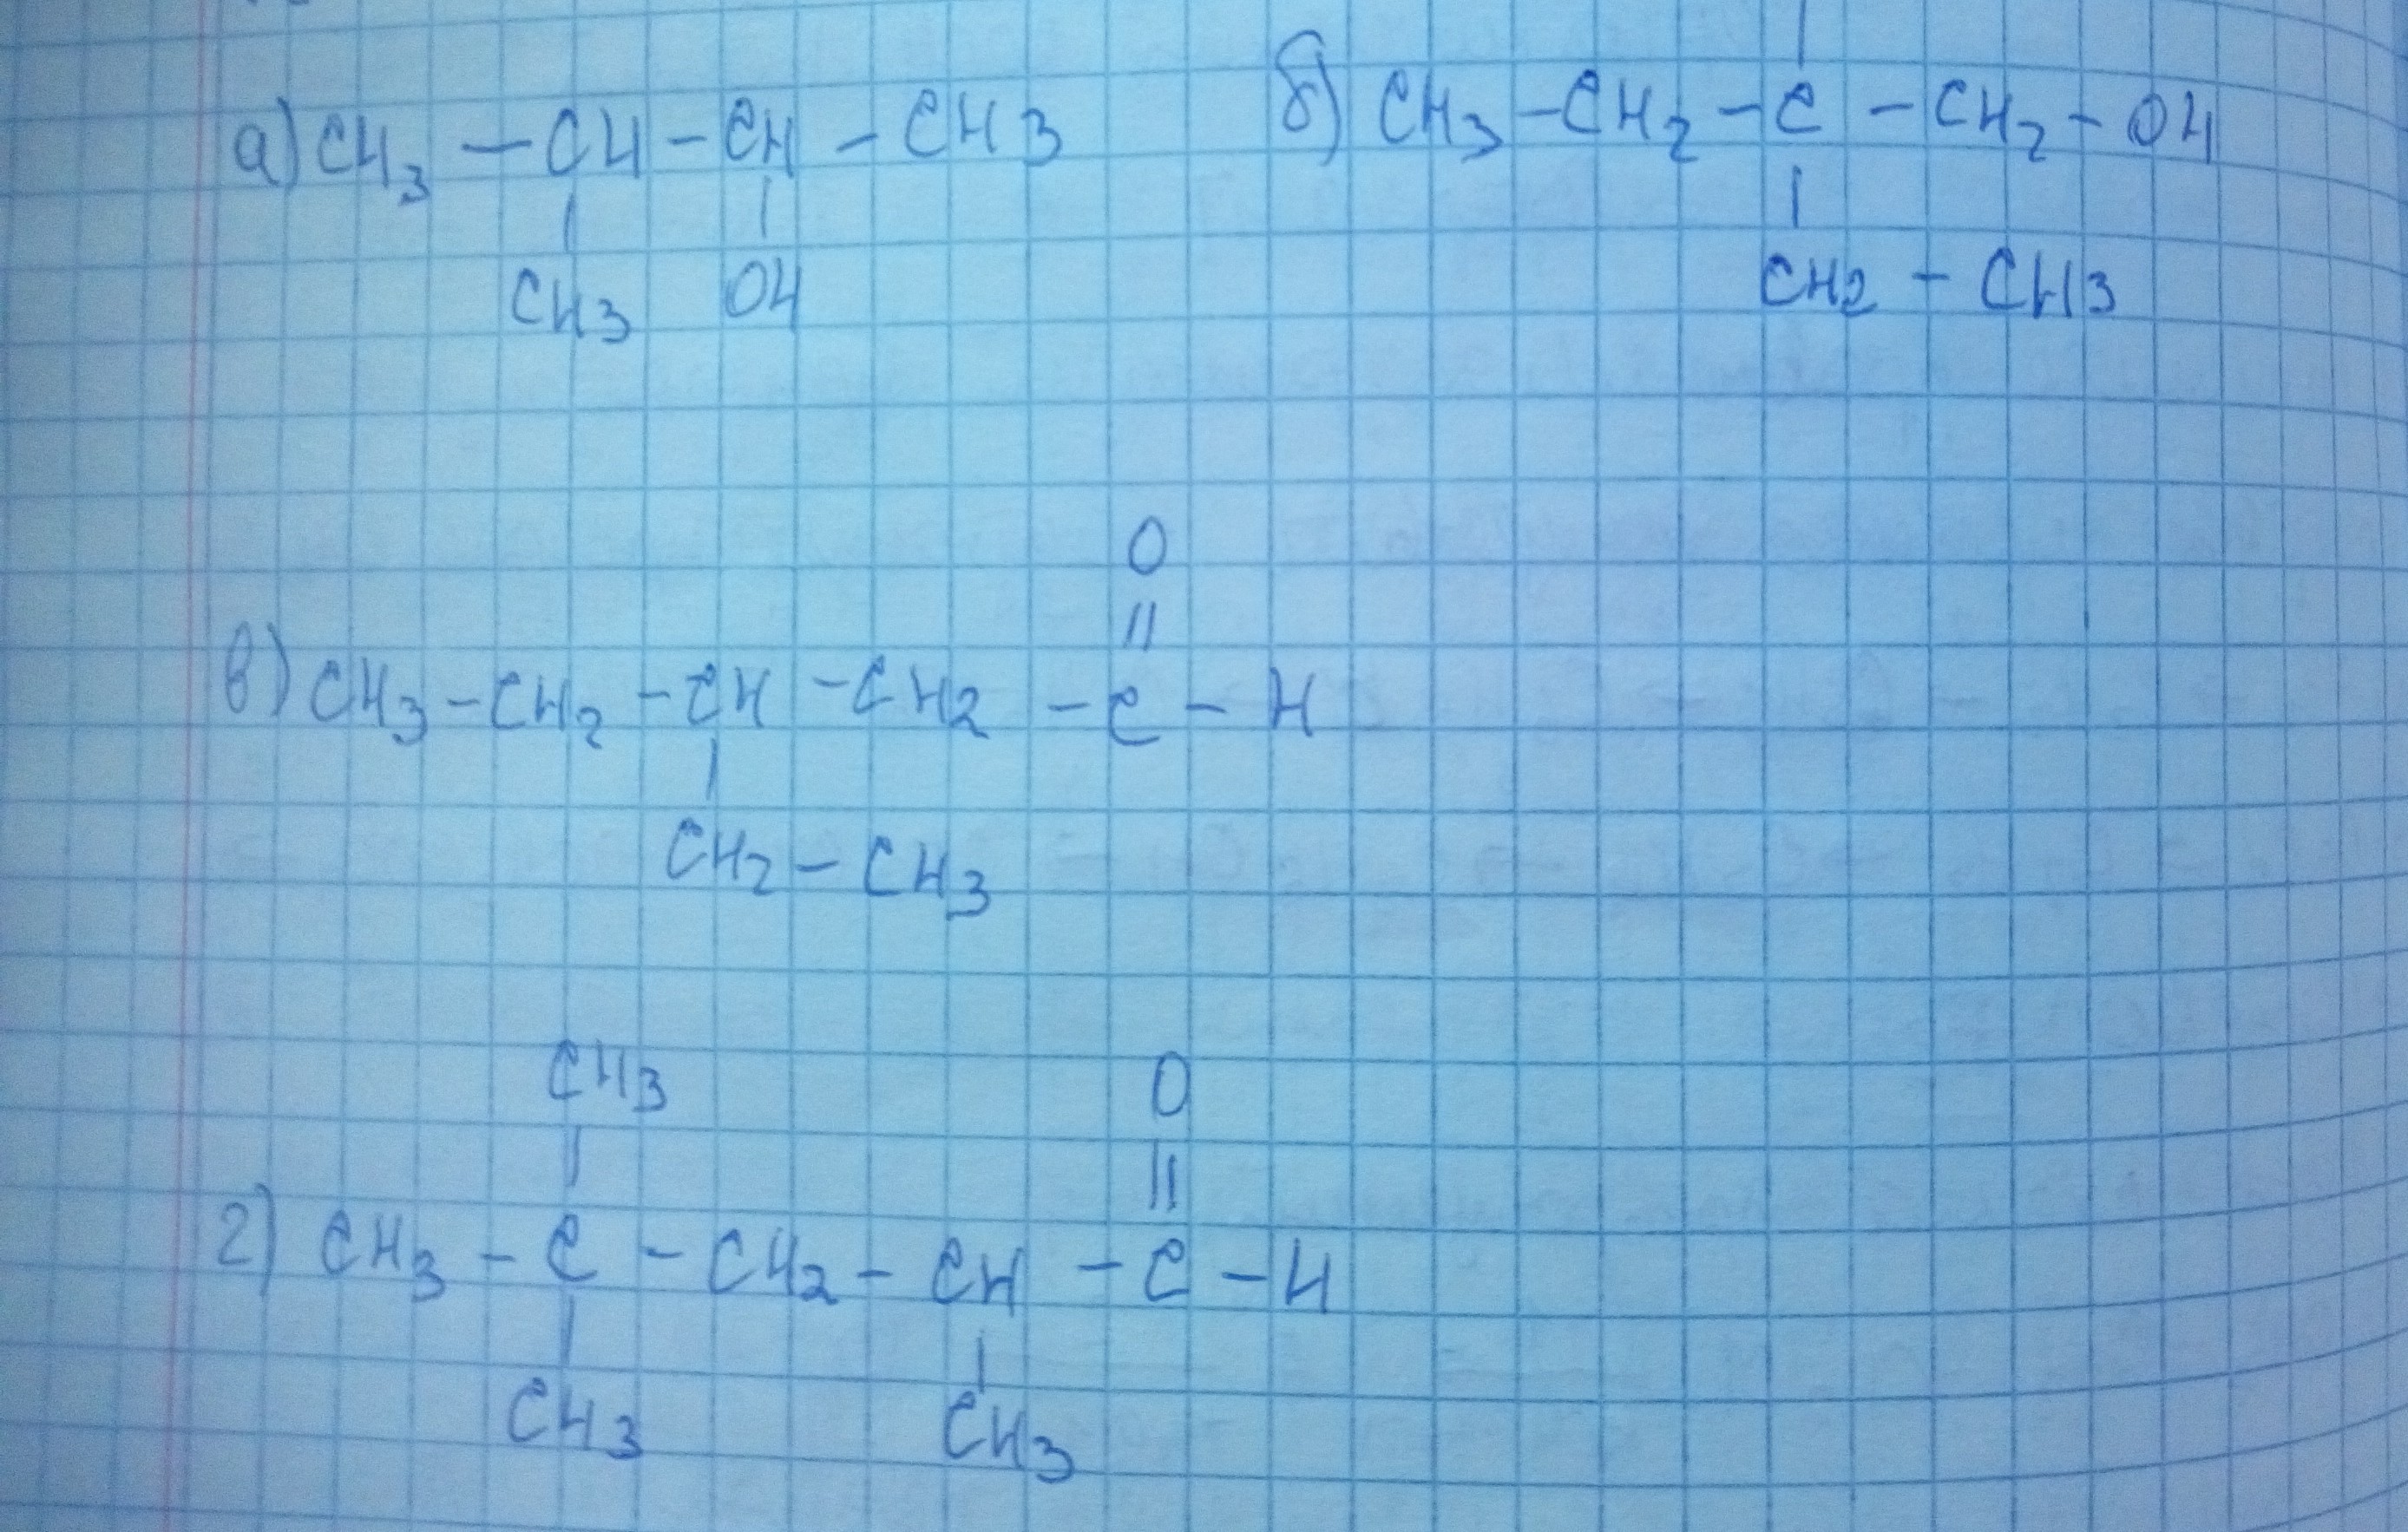 а) CH3 — CH — CH — CH3
| |
CH3 OH
б) CH3 — CH2 — C — CH2 — OH
|
CH2 — CH3
O
||
в) CH3 — CH2 — CH — CH2 — C — H
|
CH2 — CH3
CH3 O
| ||
г) CH3 — C — CH2 — CH — C — H
| |
CH3 CH3